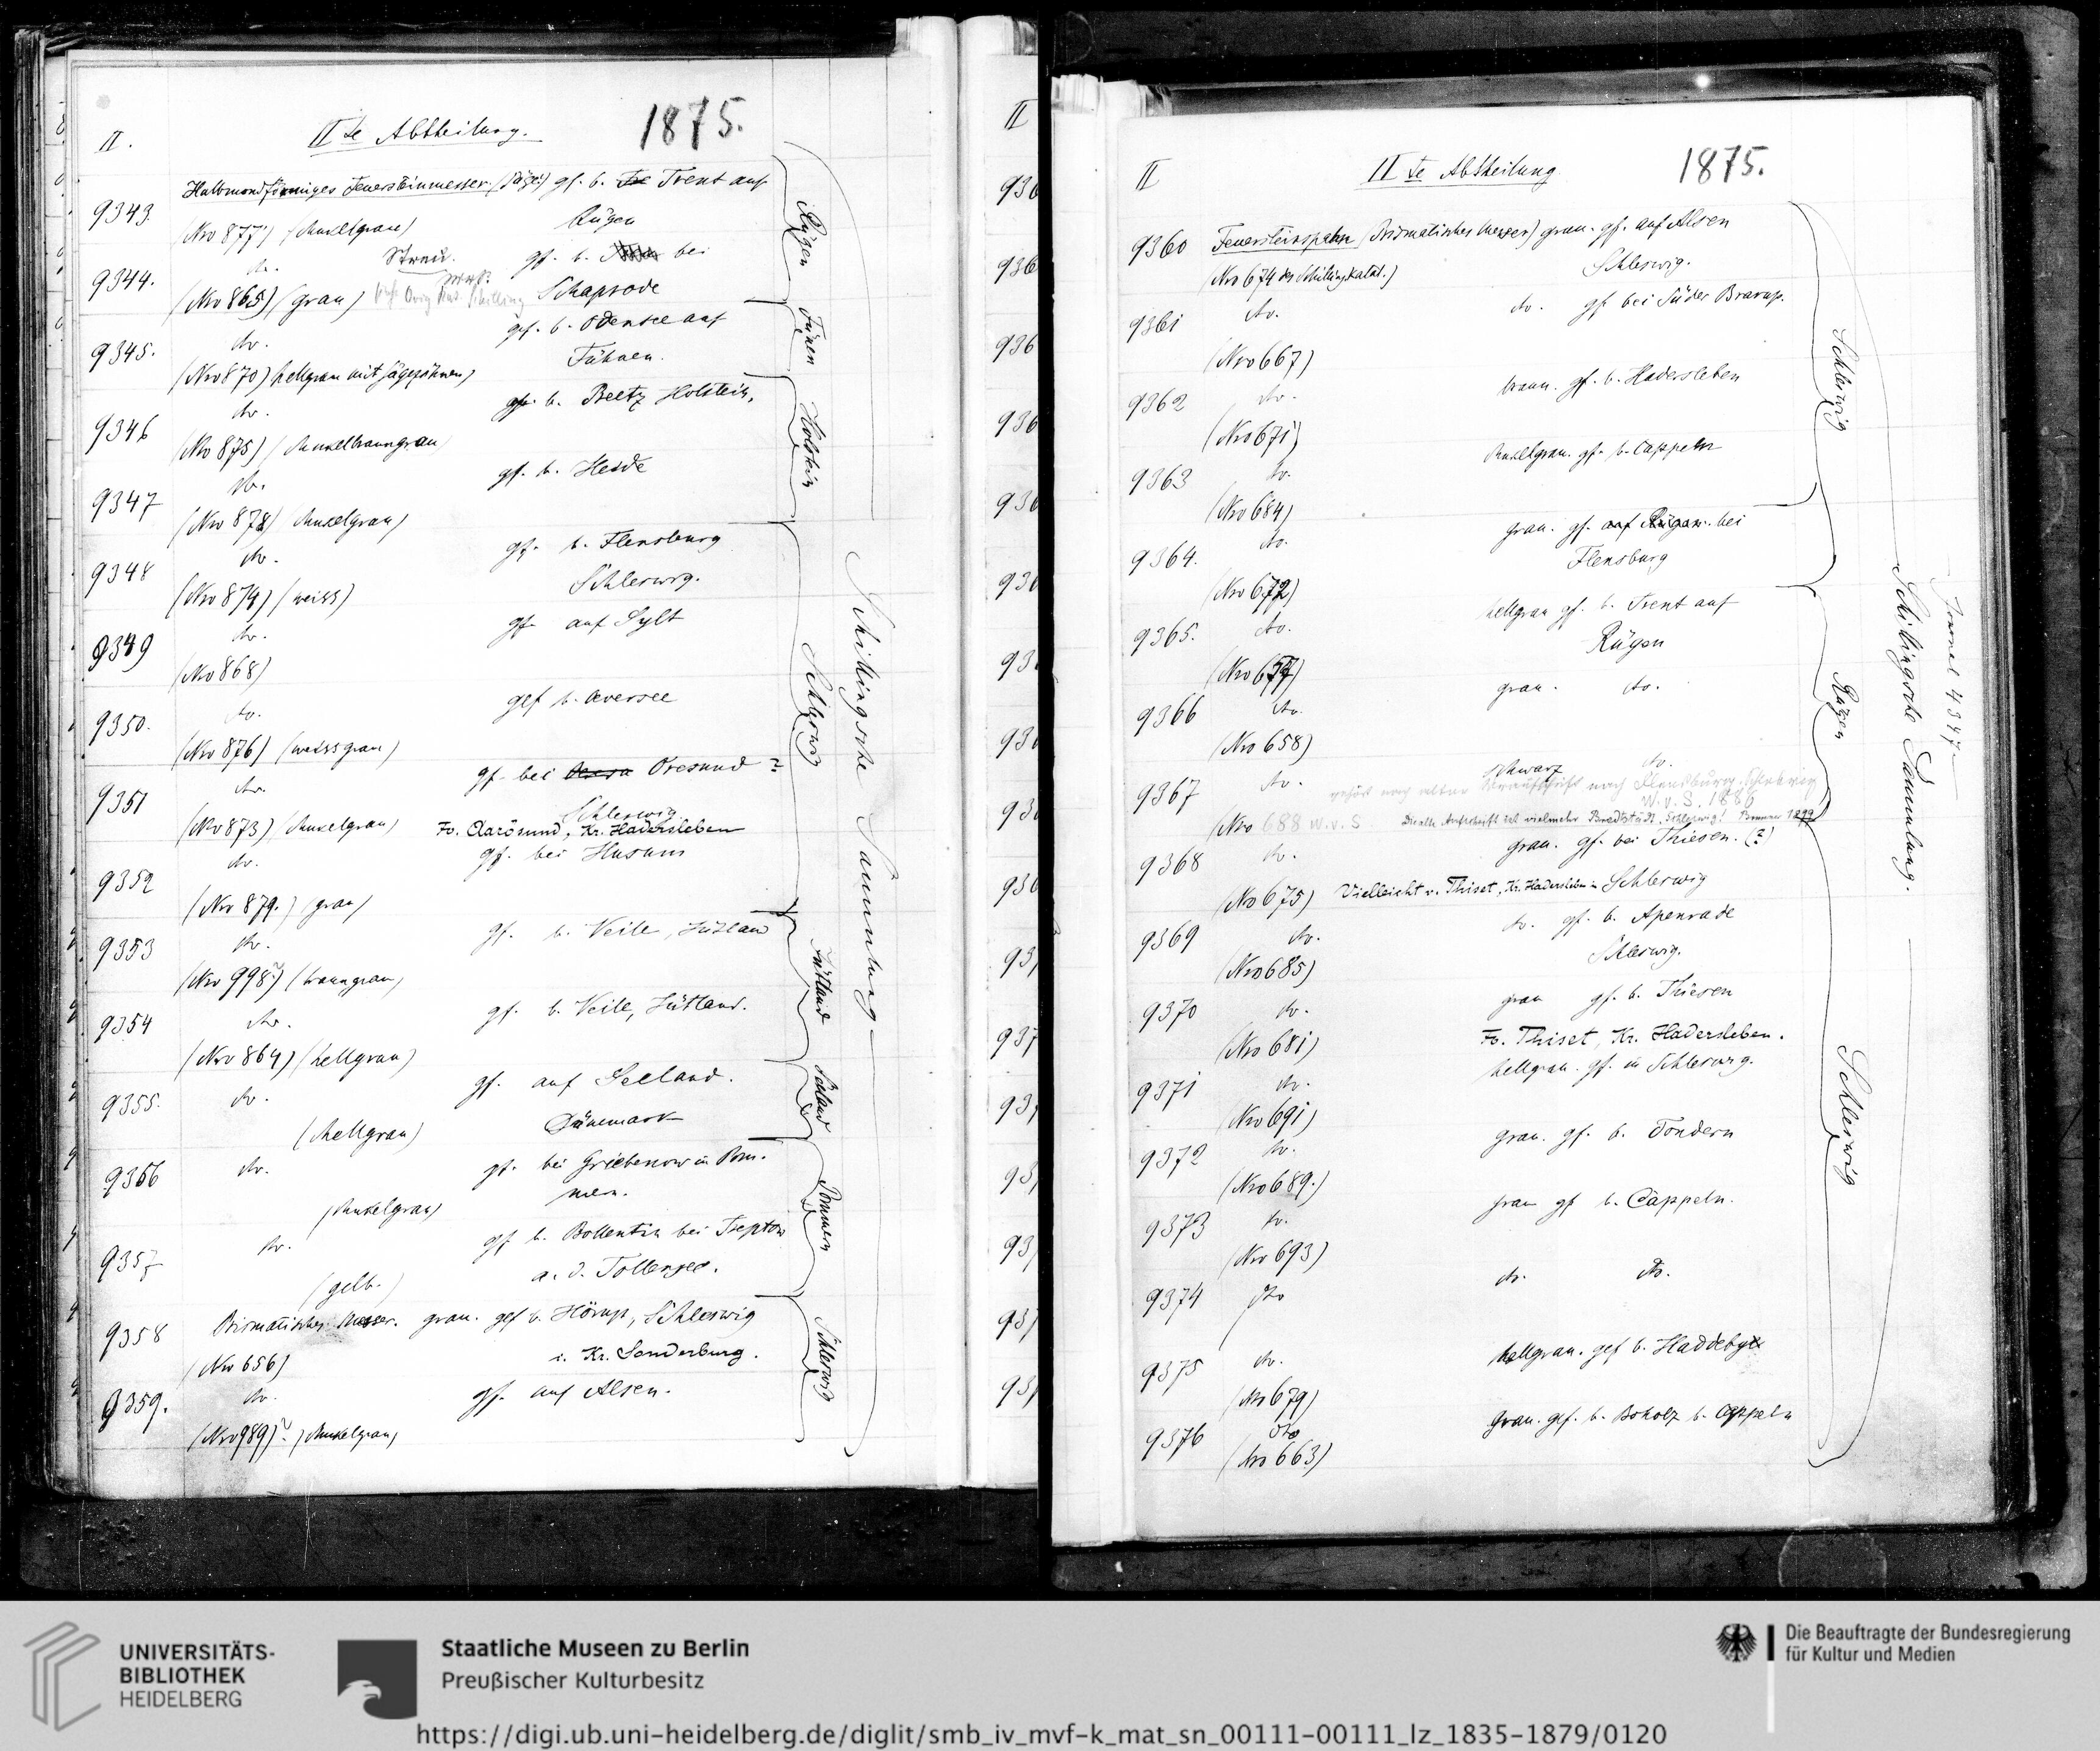 II.
IIte Abtheilung.
1875.
Halbmondförmiges Feuersteinmesser (Säge) gf. b. Trent auf
9343
(Nro 877) (dunkelgrau)
Rügen
Streu.
9344.
do.
gf. b. bei
(Nro 865) (grau)
Schaprode
9345.
do.
gef. b. Odensee auf
(Nro 870) hellgrau mit Sägezähnen)
Fühnen.
9346
do.
gf. b. Preetz Holstein.
(Nro 875) (dunkelbraungrau)
9347
do.
gf. b. Heide
(Nro 878) dunkelgrau)
9348
do.
gf. b. Flensburg
(Nro 874) (weiss)
Schleswig.
9349
do.
gf. auf Sylt
(Nro 868)
9350.
do.
gef b. Oversee
(Nro 876) (weissgrau)
9351
do.
gf. bei Oresund ?
(Nro 873) (dunkelgrau)
Schleswig
Fo. Aarösund, Kr. Hadersleben
9352
do.
gf. bei Husum
(Nro 879.) (grau)
9353
do.
gf. b. Veile, Jütland
(Nro 998?) (braungrau)
9354
do.
gf. b. Veile, Jütland.
(Nro 864) (hellgrau)
9355.
do.
gf. auf Seeland.
(hellgrau)
Dänemark
9356
do.
gf. bei Griebenow in Pom-
(dunkelgrau)
mern.
9357
do.
gf b. Bollentin bei Treptow
(gelb.)
a. d. Tollensee.
9358
Prismatisches Messer. grau. gef b. Hörup, Schleswig
(Nro 656)
i. Kr. Sonderburg.
9359.
do.
gf. auf Alsen.
(Nro 989)? (dunkelgrau)
Rügen
Fünen
Holstein
Schleswig
Jütland
Seeland
Pommern
Schleswig
Schillingsche Sammlung
II
IIte Abtheilung
1875.
9360
Feuersteinspahn (Prismatisches Messer) grau. gf. auf Alsen
(Nro 674 des Schillingkatal.)
Schleswig.
9361
do.
do. gf bei Süder Brarup.
(Nro 667)
9362
do.
braun. gf. b. Hadersleben
(Nro 671)
9363
do.
dunkelgrau. gf. b. Cappeln
(Nro 684)
9364.
do.
grau. gf. auf Rügen. bei
(Nro 672)
Flensburg
9365.
do.
hellgrau gf. b. Trent auf
(Nro 677)
Rügen
9366
do.
grau. do.
(Nro 658)
9367
do.
schwarz do.
gehört nach alter Aufschrift nach Flensburg, Schleswig
W.v.S. 1886
(Nro 688 W.v.S
Die alte Aufschrift ist vielmehr Bredstädt, Schleswig!
9368
do.
grau. gf. bei Thiesen. (?)
(Nro 675) Vielleicht v. Thiset, Kr. Hadersleben in Schleswig
9369
do.
do. gf. b. Apenrade
(Nro 685)
Schleswig.
9370
do.
grau gf. b. Thiesen
(Nro 681)
Fo. Thiset, Kr. Hadersleben.
9371
do.
hellgrau. gf. in Schleswig.
(Nro 691)
9372
do.
grau. gf. b. Tondern
(Nro 689.)
9373
do.
grau gf b. Cappeln.
(Nro 693)
9374
do
do. do.
9375
do.
hellgrau. gef b. Haddebye
(Nro 679)
9376
do
Grau. gef. b. Boholz b. Cappeln
(Nro 663)
Schleswig
Rügen
Schleswig
Schillingsche Sammlung.
Journal 4347
UNIVERSITÄTS-
BIBLIOTHEK
HEIDELBERG
Staatliche Museen zu Berlin
Preußischer Kulturbesitz
Die Beauftragte der Bundesregierung
für Kultur und Medien
https://digi.ub.uni-heidelberg.de/diglit/smb_iv_mvf-k_mat_sn_00111-00111_lz_1835-1879/0120